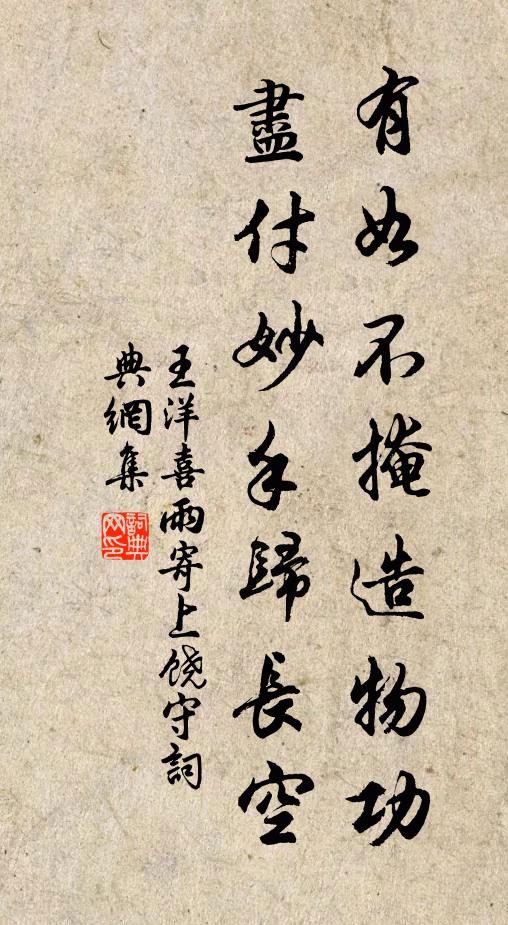 有如不掩造物功
盡付妙手歸長空
王洋喜雨寄上饶守詞
典網集
詞典網印